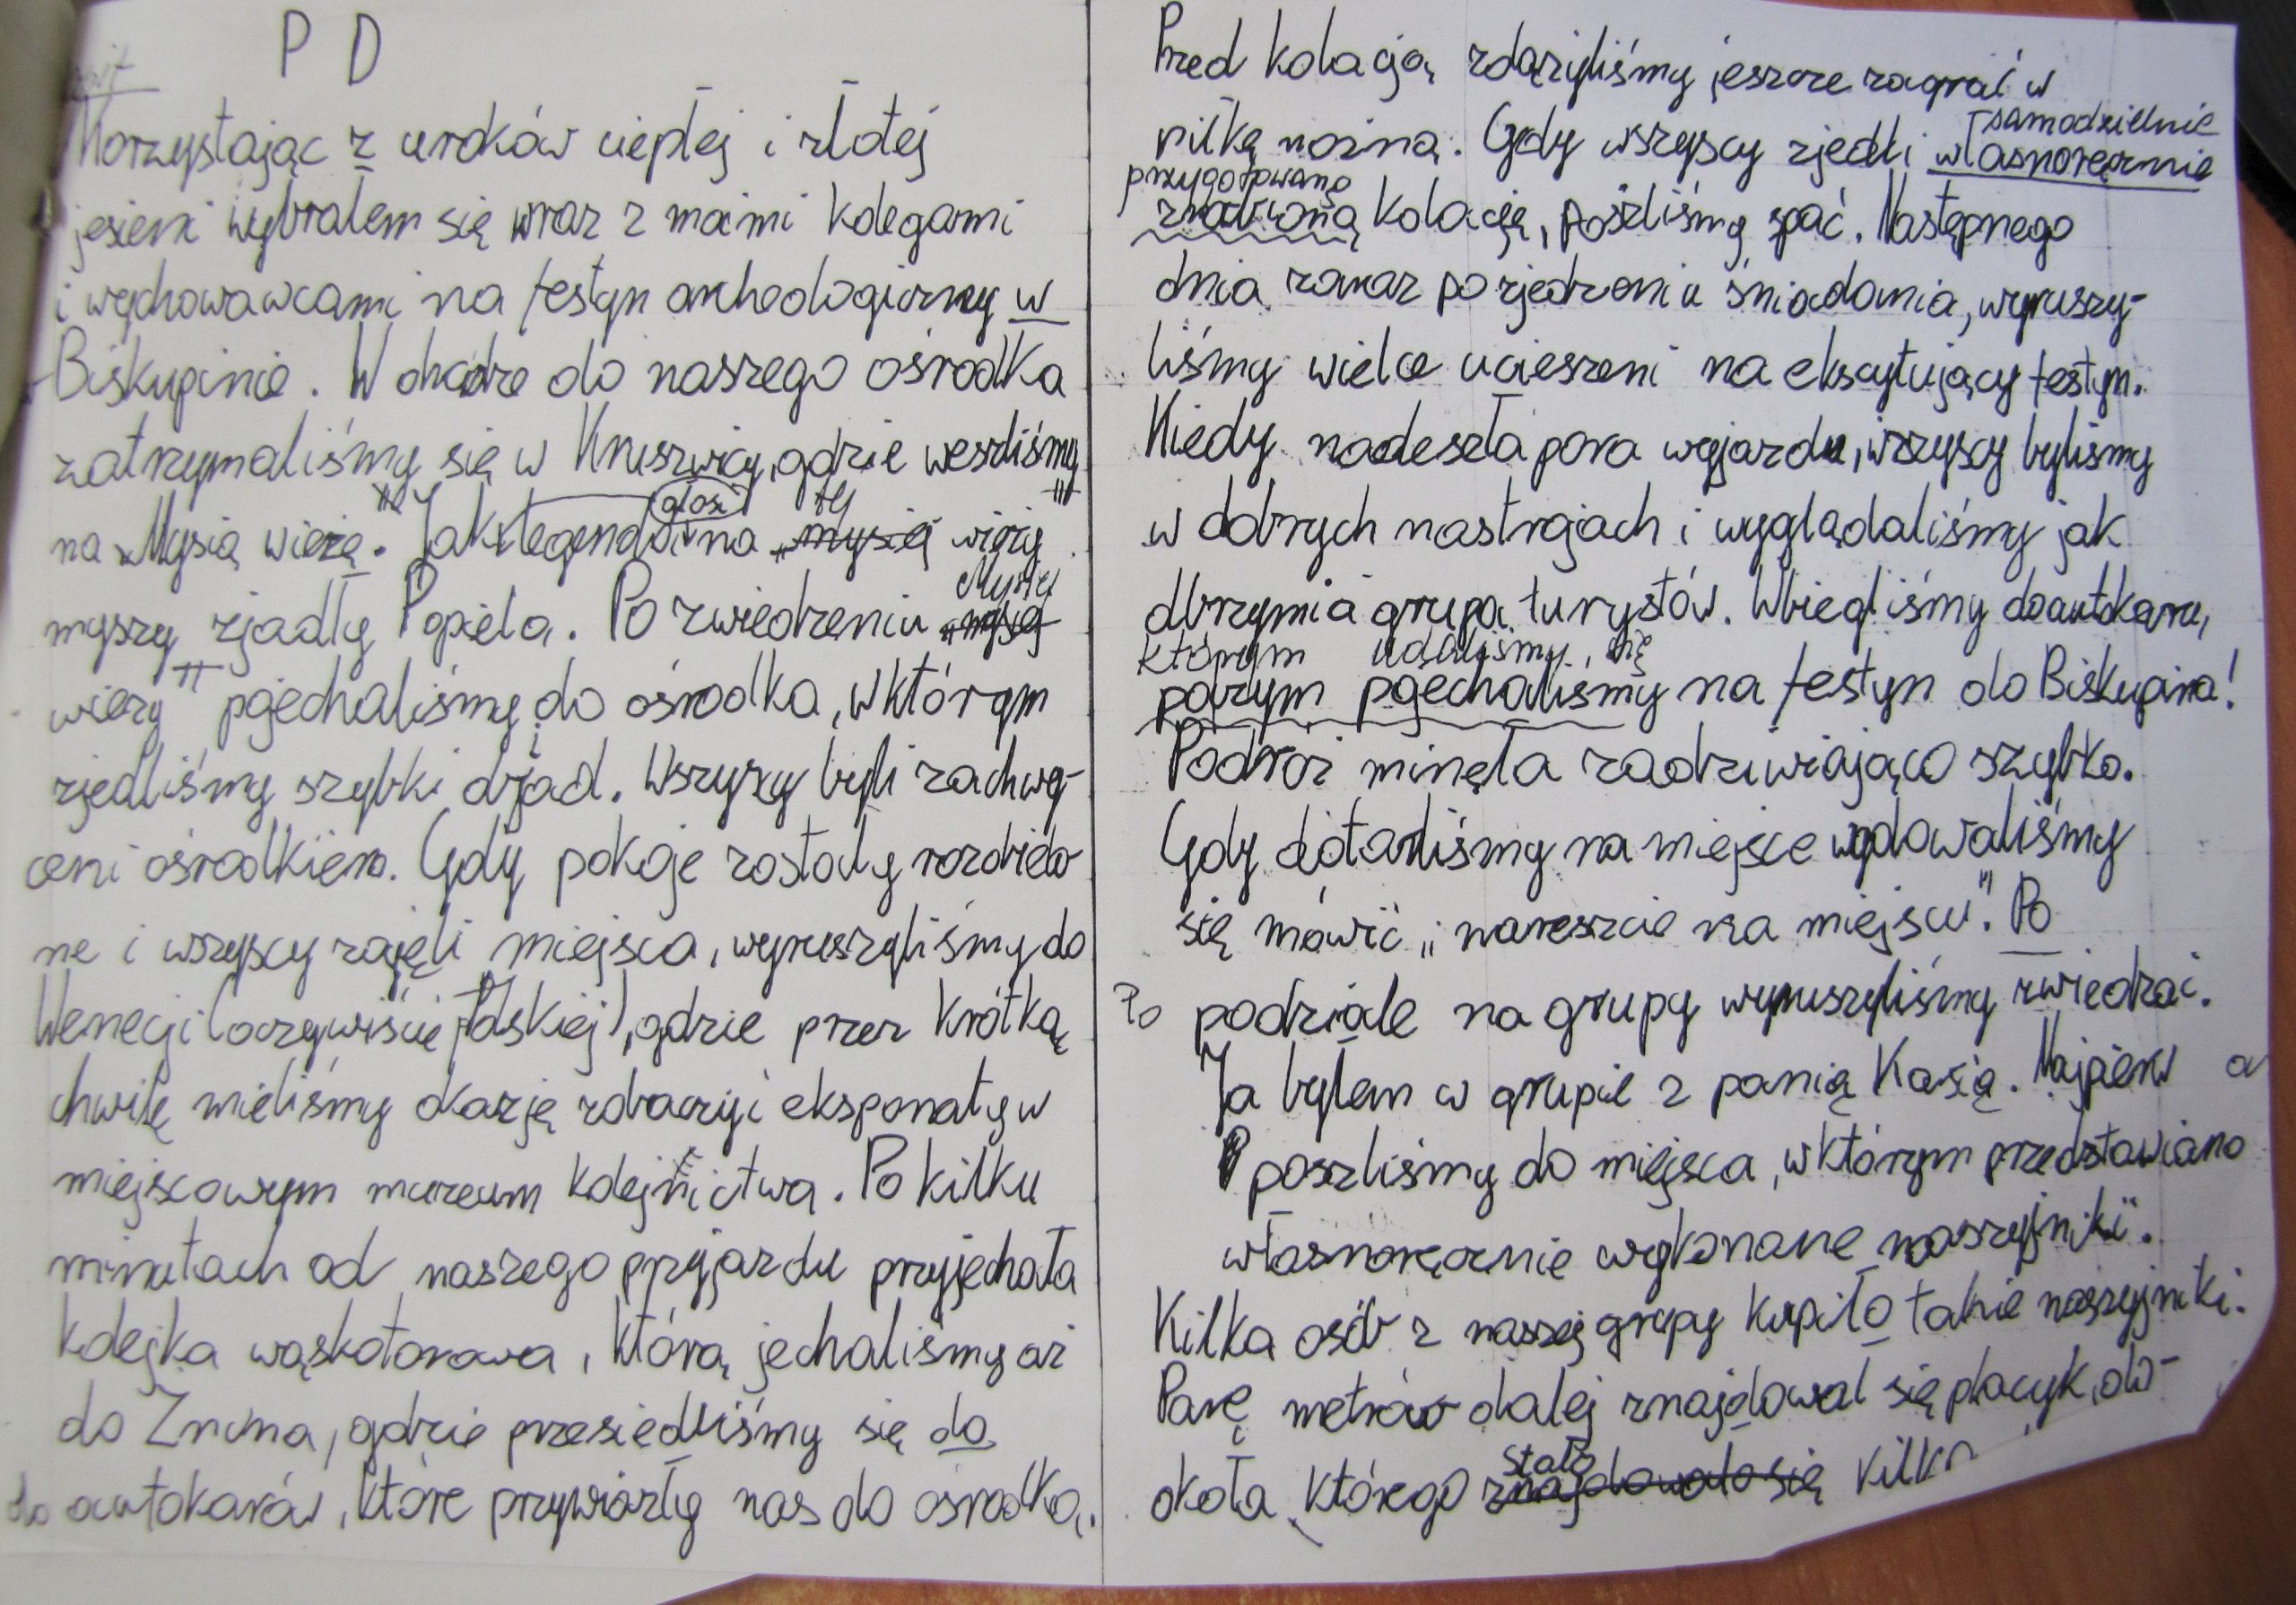 P D
Korzystając z uroków ciepłej i złotej
jesieni wybrałem się wraz z moimi kolegami
i wychowawcami na festyn archeologiczny w
Biskupinie. W drodze do naszego ośrodka
zatrzymaliśmy się w Kruszwicy, gdzie weszliśmy
na „Mysią wieżę". Jak legenda głosi na tej „mysiej wieży"
myszy zjadły Popiela. Po zwiedzeniu „mysiej Mysiej
wieży" pojechaliśmy do ośrodka, w którym
zjedliśmy szybki objad. Wszyscy byli zachwy-
ceni ośrodkiem. Gdy pokoje zostały rozdzielo-
ne i wszyscy zajęli miejsca, wyruszyliśmy do
Wenecji (oczywiście Polskiej), gdzie przez krótką
chwilę mieliśmy okazję zobaczyć eksponaty w
miejscowym muzeum kolejnictwa. Po kilku
minutach od naszego przyjazdu przyjechała
kolejka wąskotorowa, którą jechaliśmy aż
do Żnina, gdzie przesiedliśmy się do
do autokarów, które przywiozły nas do ośrodka.
Przed kolacją zdążyliśmy jeszcze zagrać w
piłkę nożną. Gdy wszyscy zjedli własnoręcznie samodzielnie
przygotowaną
zrobioną kolację, poszliśmy spać. Następnego
dnia zaraz po zjedzeniu śniadania, wyruszy-
liśmy wielce ucieszeni na ekscytujący festyn.
Kiedy nadeszła pora wyjazdu, wszyscy byliśmy
w dobrych nastrojach i wyglądaliśmy jak
olbrzymia grupa turystów. Wbiegliśmy do autokaru,
którym udaliśmy się
poczym pojechaliśmy na festyn do Biskupina!
Podróż minęła zadziwiająco szybko.
Gdy dotarliśmy na miejsce wydawaliśmy
się mówić „nareszcie na miejscu". Po
Po podziale na grupy wyruszyliśmy zwiedzać.
Ja byłem w grupie z panią Kasią. Najpierw
poszliśmy do miejsca, w którym przedstawiano
własnoręcznie wykonane naszyjniki".
Kilka osób z naszej grupy kupiło takie naszyjniki.
Parę metrów dalej znajdował się placyk, do-
okoła którego stało znajdowało się kilka